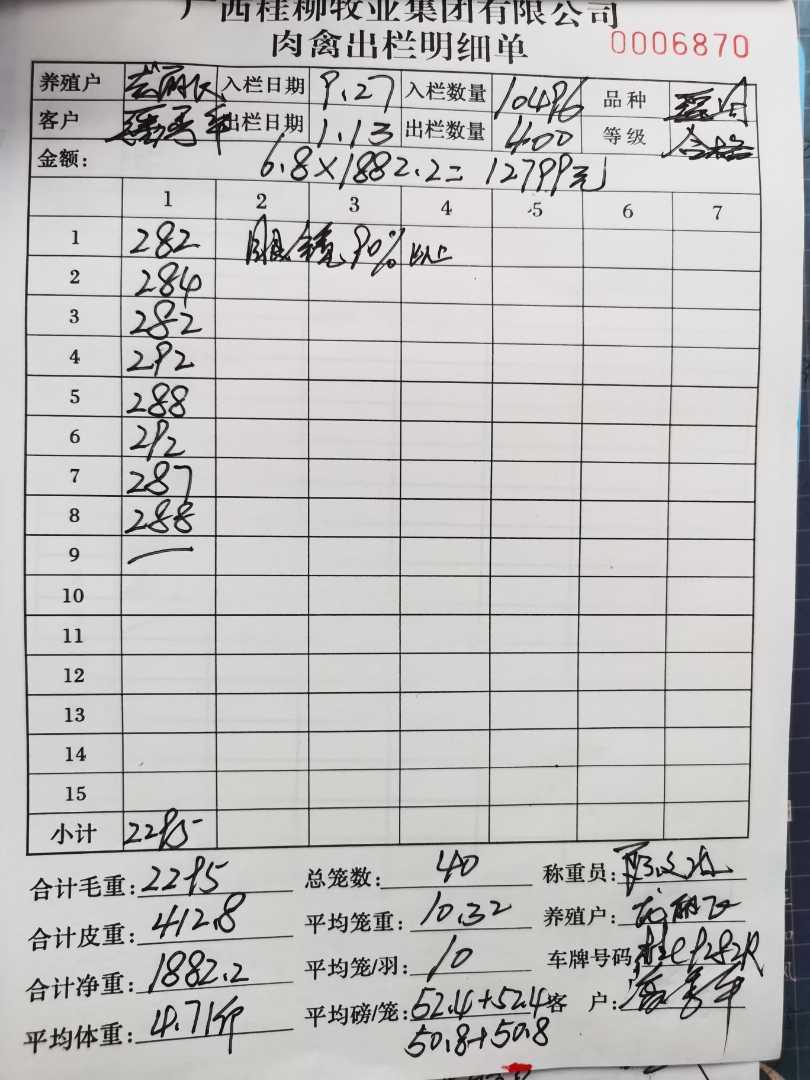 广西桂柳牧业集团有限公司
肉禽出栏明细单 0006870
养殖户 入栏日期 9.27 入栏数量 10496 品种
客户 出栏日期 1.13 出栏数量 400 等级 合格
金额: 6.8×1882.2= 12799元
1 2 3 4 5 6 7
1 282 90%以上
2 284
3 282
4 292
5 288
6 292
7 287
8 288
9 —
10
11
12
13
14
15
小计 2295
合计毛重: 2295 总笼数: 40 称重员:
合计皮重: 412.8 平均笼重: 10.32 养殖户:
合计净重: 1882.2 平均笼/羽: 10 车牌号码:
平均体重: 4.71斤 平均磅/笼: 52.4+52.4 客户:
50.8+50.8